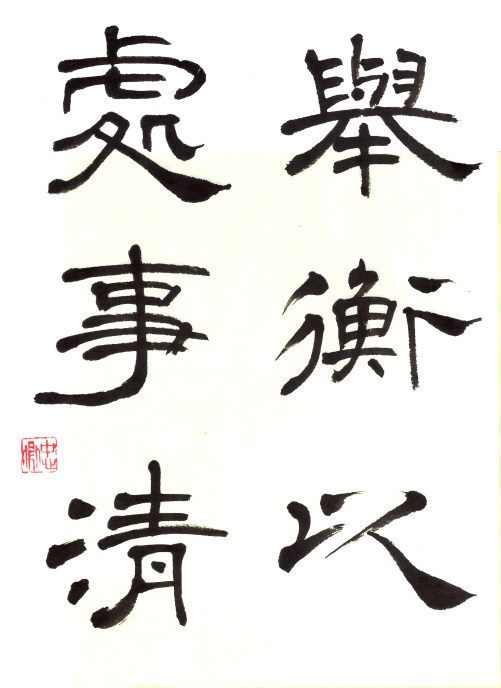 舉衡以
處事清